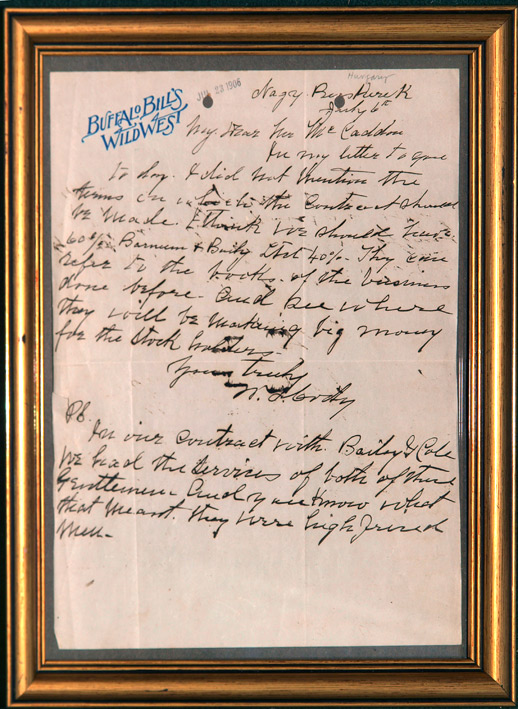 Hungary
JUL 23 1906
BUFFALO BILL'S
WILD WEST
Nagy
July 6th
My Dear Mr McCaddon
In my letter to you
to day. I did not mention the
terms on which the Contract should
be made. I think we should have
60%. Barnum & Baily 40%. They can
refer to the books. of the business
done before. And see where
they will be making big money
for the stock holders
Yours truly
W. F. Cody
PS
In our contract with. Bailey & Cole
We had the services of both of these
Gentlemen And you know what
that meant. they were high priced
Men-